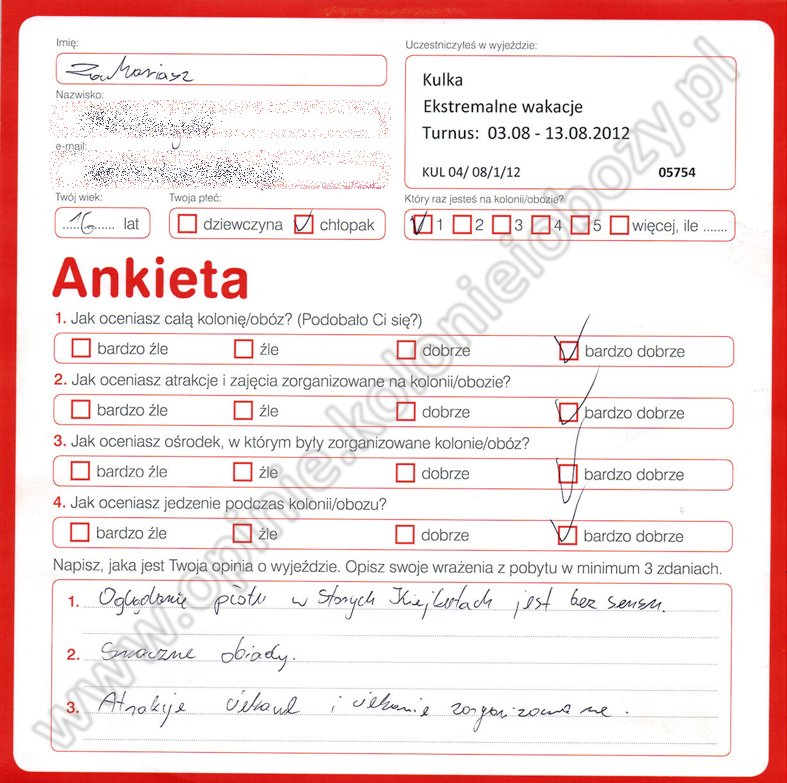 Imię:
Uczestniczyłeś w wyjeździe:
Kulka
Nazwisko:
Ekstremalne wakacje
Turnus: 03.08 - 13.08.2012
e-mail:
KUL 04/ 08/1/12 05754
Twój wiek: Twoja płeć: Który raz jesteś na kolonii/obozie?
16 lat dziewczyna chłopak 1 2 3 4 5 więcej, ile .......
Ankieta
1. Jak oceniasz całą kolonię/obóz? (Podobało Ci się?)
bardzo źle źle dobrze bardzo dobrze
2. Jak oceniasz atrakcje i zajęcia zorganizowane na kolonii/obozie?
bardzo źle źle dobrze bardzo dobrze
3. Jak oceniasz ośrodek, w którym były zorganizowane kolonie/obóz?
bardzo źle źle dobrze bardzo dobrze
4. Jak oceniasz jedzenie podczas kolonii/obozu?
bardzo źle źle dobrze bardzo dobrze
Napisz, jaka jest Twoja opinia o wyjeździe. Opisz swoje wrażenia z pobytu w minimum 3 zdaniach.
1. Oglądanie w Starych Kiejkutach jest bez sensu.
2. Smaczne obiady.
3. Atrakcje ciekawe i ciekawie zorganizowane.
www.opinie.kolonieiobozy.pl